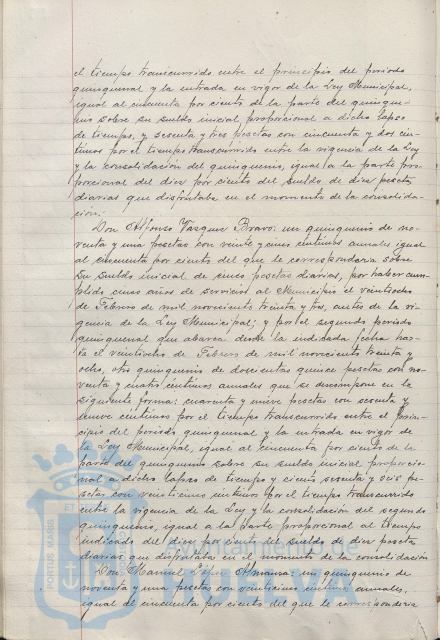 el tiempo transcurrido entre el principio del periodo
quinquenal y la entrada en vigor de la Ley Municipal,
igual al cincuenta por ciento de la parte del quinque-
nio sobre su sueldo inicial proporcional a dicho lapso
de tiempo, y sesenta y tres pesetas con cincuenta y dos cén-
timos por el tiempo transcurrido entre la vigencia de la Ley
y la consolidación del quinquenio, igual a la parte pro-
porcional del diez por ciento del sueldo de diez pesetas
diarias que disfrutaba en el momento de la consolida-
ción.
Don Alfonso Vazquez Bravo: un quinquenio de no-
venta y una pesetas con veinte y cinco céntimos anuales igual
al cincuenta por ciento del que le correspondería sobre
su sueldo inicial de cinco pesetas diarias, por haber cum-
plido cinco años de servicio al Municipio el veintiocho
de Febrero de mil novecientos treinta y tres, antes de la vi-
gencia de la Ley Municipal; y por el segundo periodo
quinquenal que abarca desde la indicada fecha has-
ta el veintiocho de Febrero de mil novecientos treinta y
ocho, otro quinquenio de doscientas quince pesetas con no-
venta y cuatro céntimos anuales que se descompone en la
siguiente forma: cuarenta y nueve pesetas con sesenta y
nueve céntimos por el tiempo transcurrido entre el prin-
cipio del periodo quinquenal y la entrada en vigor de
la Ley Municipal, igual al cincuenta por ciento de la
parte del quinquenio sobre su sueldo inicial proporcio-
nal a dicho lapso de tiempo y ciento sesenta y seis pe-
setas con veinticinco céntimos por el tiempo transcurrido
entre la vigencia de la Ley y la consolidación del segundo
quinquenio, igual a la parte proporcional al tiempo
indicado del diez por ciento del sueldo de diez pesetas
diarias que disfrutaba en el momento de la consolidación
Don Manuel López Almansa: un quinquenio de
noventa y una pesetas con veinticinco céntimos anuales,
igual al cincuenta por ciento del que le correspondería
PORTUS MARIS
ET